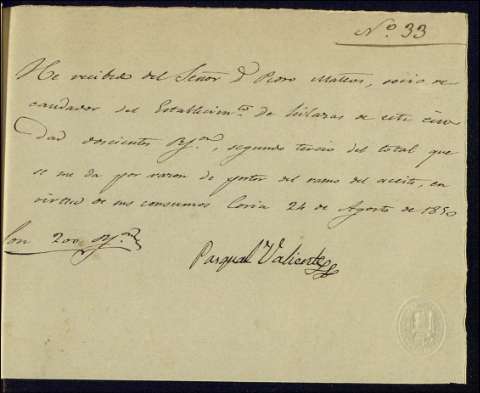 Nº. 33
He recibido del Señor D. Pedro Mateos, socio re
caudador del Establecim.to de hilazas de esta ciu
dad doscientos R.s v.n, segundo tercio del total que
se me da por razon de portes del ramo del aceite, en
virtud de sus consumos Coria 24 de Agosto de 1850
Son 200 R.s v.n
Pasqual Valiente